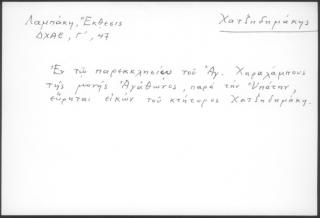 Λαμπάκη, Ἔκθεσις
Χατζηδημάκης
ΔΧΑΕ, Γ΄, 47
Ἐν τῷ παρεκκλησίῳ τοῦ Ἁγ. Χαραλάμπους
τῆς μονῆς Ἀγάθωνος, παρά τήν Ὑπάτην,
εὕρηται εἰκών τοῦ κτήτορος Χατζηδημάκη.